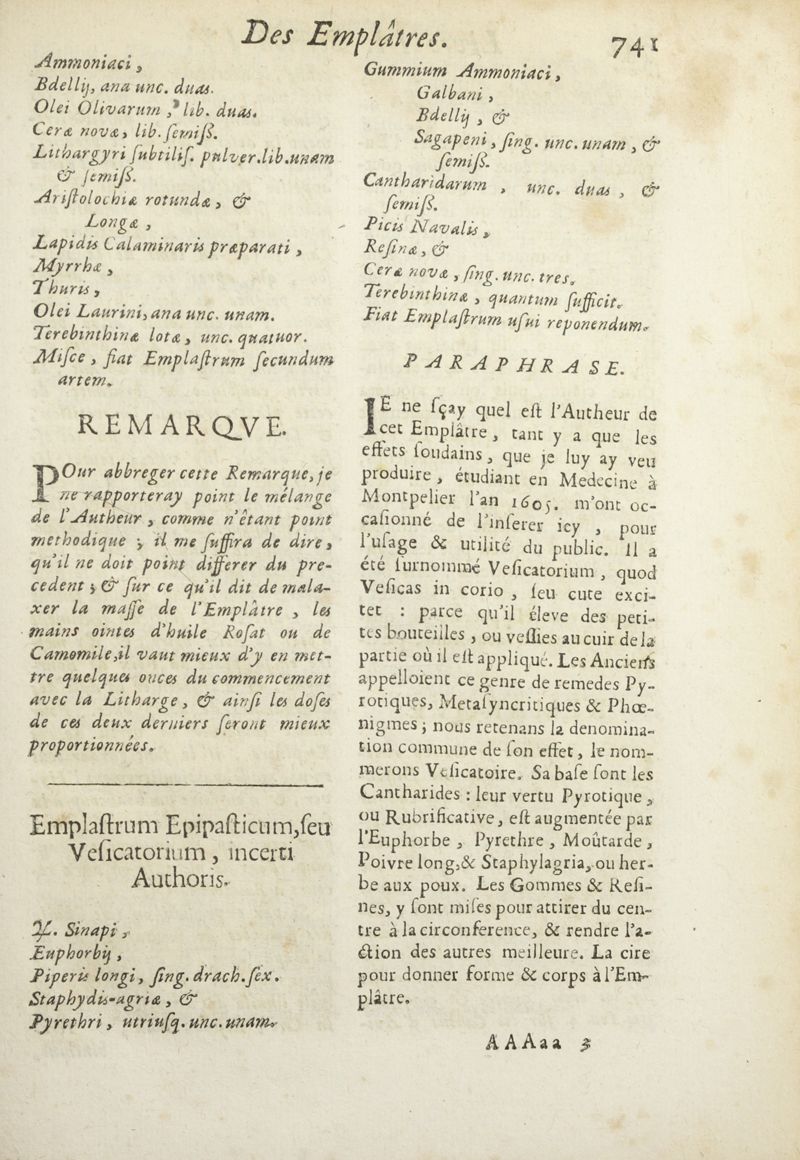 Des Emplâtres. 741
Ammoniaci,
Bdellij, ana unc. duas.
Olei Olivarum, lib. duas.
Ceræ novæ, lib. ſemiſſ.
Lithargyri ſubtiliſ. pulver. lib. unam
& ſemiſſ.
Ariſtolochiæ rotundæ, &
Longæ,
Lapidis Calaminaris præparati,
Myrrhæ,
Thuris,
Olei Laurini, ana unc. unam.
Terebinthinæ lotæ, unc. quatuor.
Miſce, fiat Emplaſtrum ſecundum
artem.
REMARQVE.
POur abbreger cette Remarque, je
ne rapporteray point le mélange
de l'Autheur, comme n'étant point
methodique ; il me ſuffira de dire,
qu'il ne doit point differer du pre-
cedent ; & ſur ce qu'il dit de mala-
xer la maſſe de l'Emplâtre, les
mains ointes d'huile Roſat ou de
Camomile, il vaut mieux d'y en met-
tre quelques onces du commencement
avec la Litharge, & ainſi les doſes
de ces deux derniers ſeront mieux
proportionnées.
Emplaſtrum Epipaſticum, ſeu
Veſicatorium, incerti
Authoris.
℞. Sinapi,
Euphorbij,
Piperis longi, ſing. drach. ſex.
Staphydis-agriæ, &
Pyrethri, utriuſq. unc. unam.
Gummium Ammoniaci,
Galbani,
Bdellij, &
Sagapeni, ſing. unc. unam, &
ſemiſſ.
Cantharidarum, unc. duas, &
ſemiſſ.
Picis Navalis,
Reſinæ, &
Ceræ novæ, ſing. unc. tres.
Terebinthinæ, quantum ſufficit.
Fiat Emplaſtrum uſui reponendum.
PARAPHRASE.
IE ne ſçay quel eſt l'Autheur de
cet Emplâtre, tant y a que les
effets ſoudains, que je luy ay veu
produire, étudiant en Medecine à
Montpelier l'an 1605. m'ont oc-
caſionné de l'inſerer icy, pour
l'uſage & utilité du public. Il a
été ſurnommé Veſicatorium, quod
Veſicas in corio, ſeu cute exci-
tet : parce qu'il éleve des peti-
tes bouteilles, ou veſſies au cuir de la
partie où il eſt appliqué. Les Anciens
appelloient ce genre de remedes Py-
rotiques, Metaſyncritiques & Phœ-
nigmes ; nous retenans la denomina-
tion commune de ſon effet, le nom-
merons Veſicatoire. Sa baſe ſont les
Cantharides : leur vertu Pyrotique,
ou Rubrificative, eſt augmentée par
l'Euphorbe, Pyrethre, Moûtarde,
Poivre long, & Staphylagria, ou her-
be aux poux. Les Gommes & Reſi-
nes, y ſont miſes pour attirer du cen-
tre à la circonference, & rendre l'a-
ction des autres meilleure. La cire
pour donner forme & corps à l'Em-
plâtre.
AAAaa 3